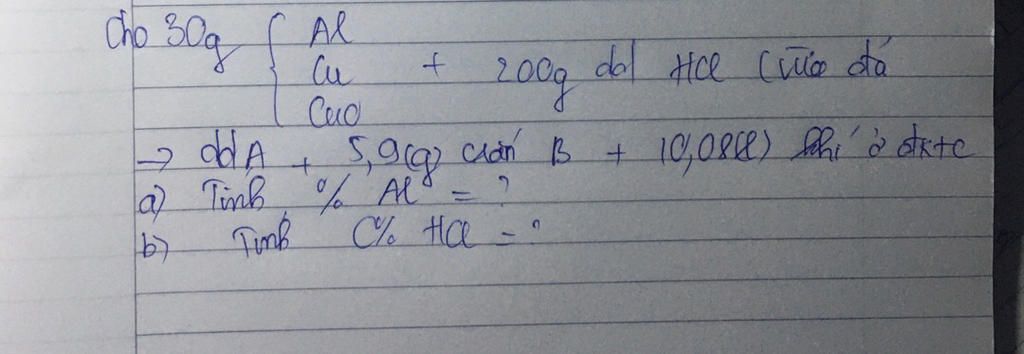 Cho 30g { Al
Cu + 200g dd HCl (vừa đủ
CuO
→ ddA + 5,9(g) rắn B + 10,08(l) khí ở đktc
a) Tính % Al = ?
b) Tính C% HCl = ?